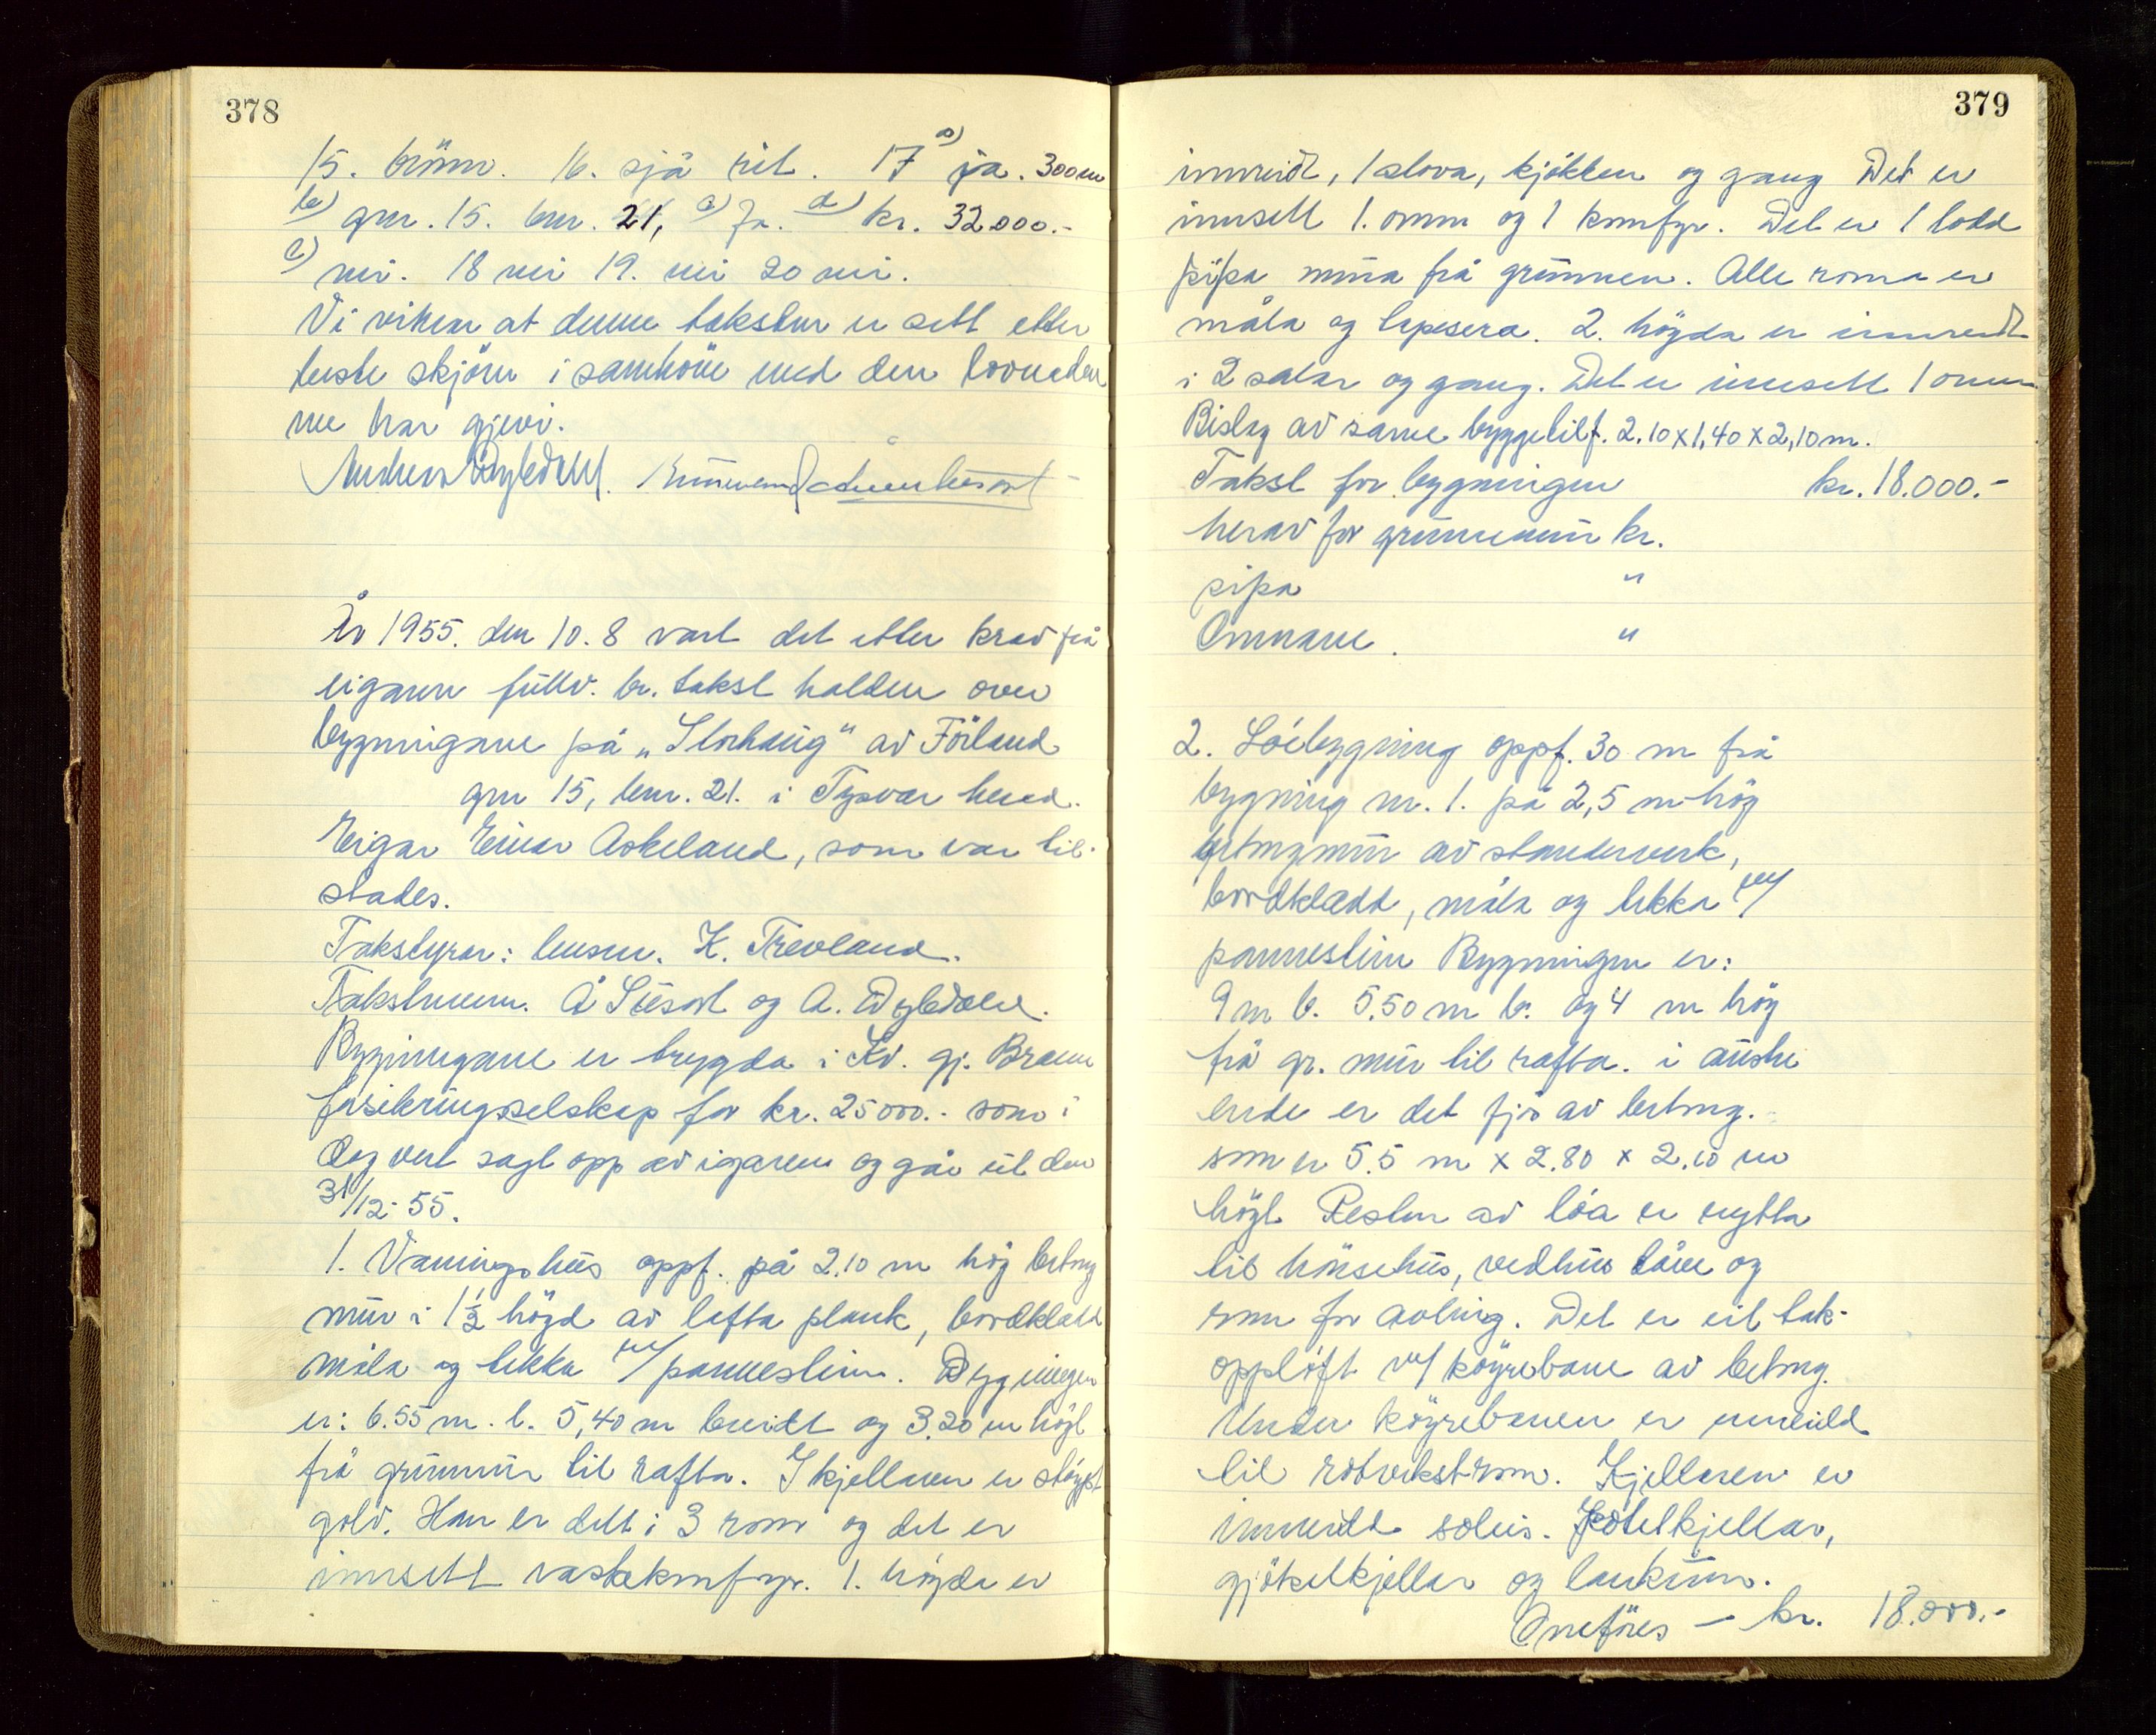 378
15. brönn. 16. sjå rit. 17 a) ja. 300 m
b) gnr. 15. bnr. 21, c) Ja. d) kr. 32000.-
e) nei. 18 nei 19. nei 20 nei.
Vi vitnar at denne taksten er sett etter
beste skjön i samhöve med den lovnaden
me har gjevi.
År 1955. den 10.8 vart det etter krav frå
eigaren fullv. br. takst halden over
bygningane på „Storhaug" av Förland
gnr 15, bnr. 21. i Tysvær herad.
Eigar Einar Askeland, som var til-
stades.
Takstyrar: lensm. K. Trevland.
Takstmenn. Å Stusort og A. Dybdal.
Bygningane er trygda i Kv. gj. Brann
forsikringsselskap for kr. 25000.- som i
dag vert sagt opp av eigaren og går ut den
31/12-55.
1. Vaningshus oppf. på 2.10 m hög betong
mur i 1½ högd av lafta plank, bordkledd
måla og tekka m/ pannestein. Bygningen
er: 6.55 m. l. 5,40 m breidt og 3.20 m högt
frå grunnmur til rafta. I kjellaren er støypt
golv. Han er delt i 3 rom og det er
innsett vaskekomfyr. 1. högda er
379
innreidt, 1 stova, kjökken og gang Det er
innsett 1. omn og 1 komfyr. Det er 1 lodd
pipa mura frå grunnen. Alle roma er
måla og tapsera. 2. högda er innreidt
i 2 salar og gang. Det er innsett 1 omn
Bislag av same byggetilf. 2.10x1,40x2,10m.
Takst for bygningen kr. 18.000.-
herav for grunnmur kr.
pipa "
Omnane. "
2. Löebygning oppf. 30 m frå
bygning nr. 1. på 2,5 m hög
betongmur av standerverk,
bordkledd, måla og tekka m/
pannestein Bygningen er:
9 m l. 5.50 m b. og 4 m hög
frå gr. mur til rafta. i austre
ende er det fjös av betong.
som er 5.5 m x 2.80 x 2.10 m
högt Resten av löa er nytta
til hönsehus, vedhus låve og
rom for avling. Det er eit tak-
opplöft m/ köyrebane av betong.
Under köyrebanen er innreidd
til rotvekst-rom. Kjellaren er
innreidd soleis. Potetkjellar,
gjötselkjellar og landkum.
Overföres – kr. 18.000.-